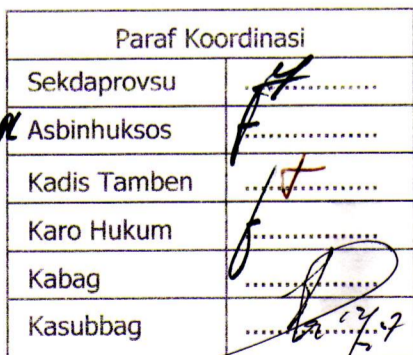 Paraf Koordinasi
Sekdaprovsu ..................
Asbinhuksos ..................
Kadis Tamben ..................
Karo Hukum ..................
Kabag ..................
Kasubbag ..................